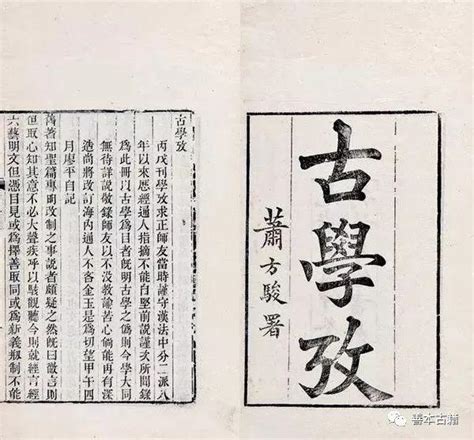 古學攷
蕭方駿署
古學攷
丙戌刊學攷求正師友當時謹守漢法中分二派八
年以來歷經通人指摘不能自堅前說謹次所聞錄
為此冊以古學為目者既明古學之偽則今學大同
無待詳說敬錄師友以不沒敎諭苦心倘能再有深
造尚將改訂海內通人不吝金玉是為切望甲午四
月廖平自記
舊著知聖篇專明改制之事說者頗疑之然既曰微言
但取心知其意不必大聲疾呼以駭觀聽今則就經言經
六藝明文但憑目見或為擇善取同或為新義創制不能
善本古籍